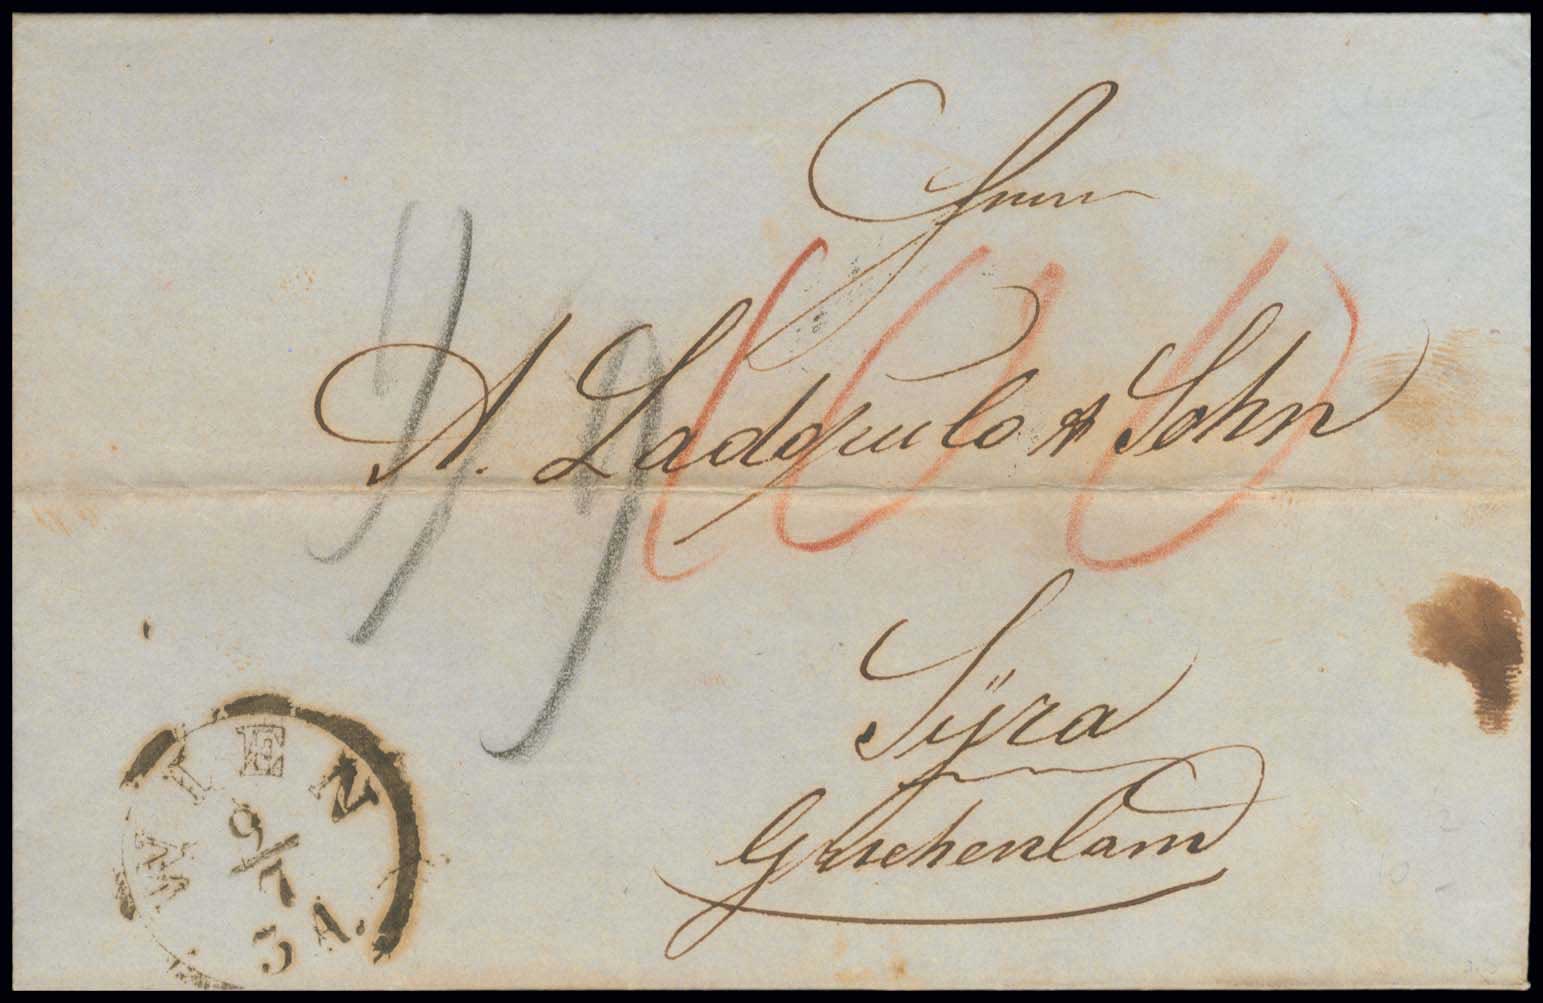 Herrn
A. Ladopulo & Sohn
Syra
Griechenland
WIEN
9/7
5 A.